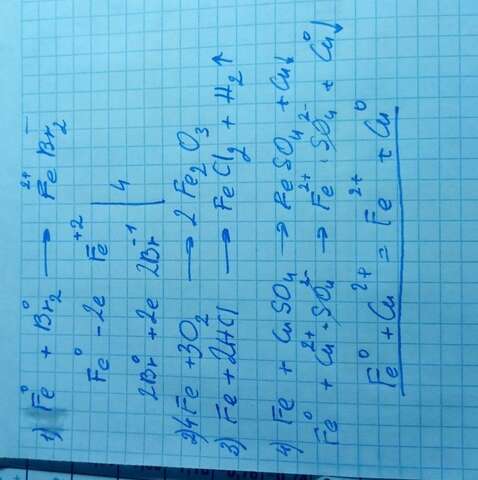 1) Fe⁰ + Br₂⁰ → Fe²⁺Br₂⁻
Fe⁰ - 2e Fe⁺²
2Br⁰ + 2e 2Br⁻¹ | 4
2) 4Fe + 3O₂ → 2Fe₂O₃
3) Fe + 2HCl → FeCl₂ + H₂↑
4) Fe + CuSO₄ → FeSO₄ + Cu↓
Fe⁰ + Cu²⁺·SO₄²⁻ → Fe²⁺·SO₄²⁻ + Cu⁰↓
Fe⁰ + Cu²⁺ = Fe²⁺ + Cu⁰